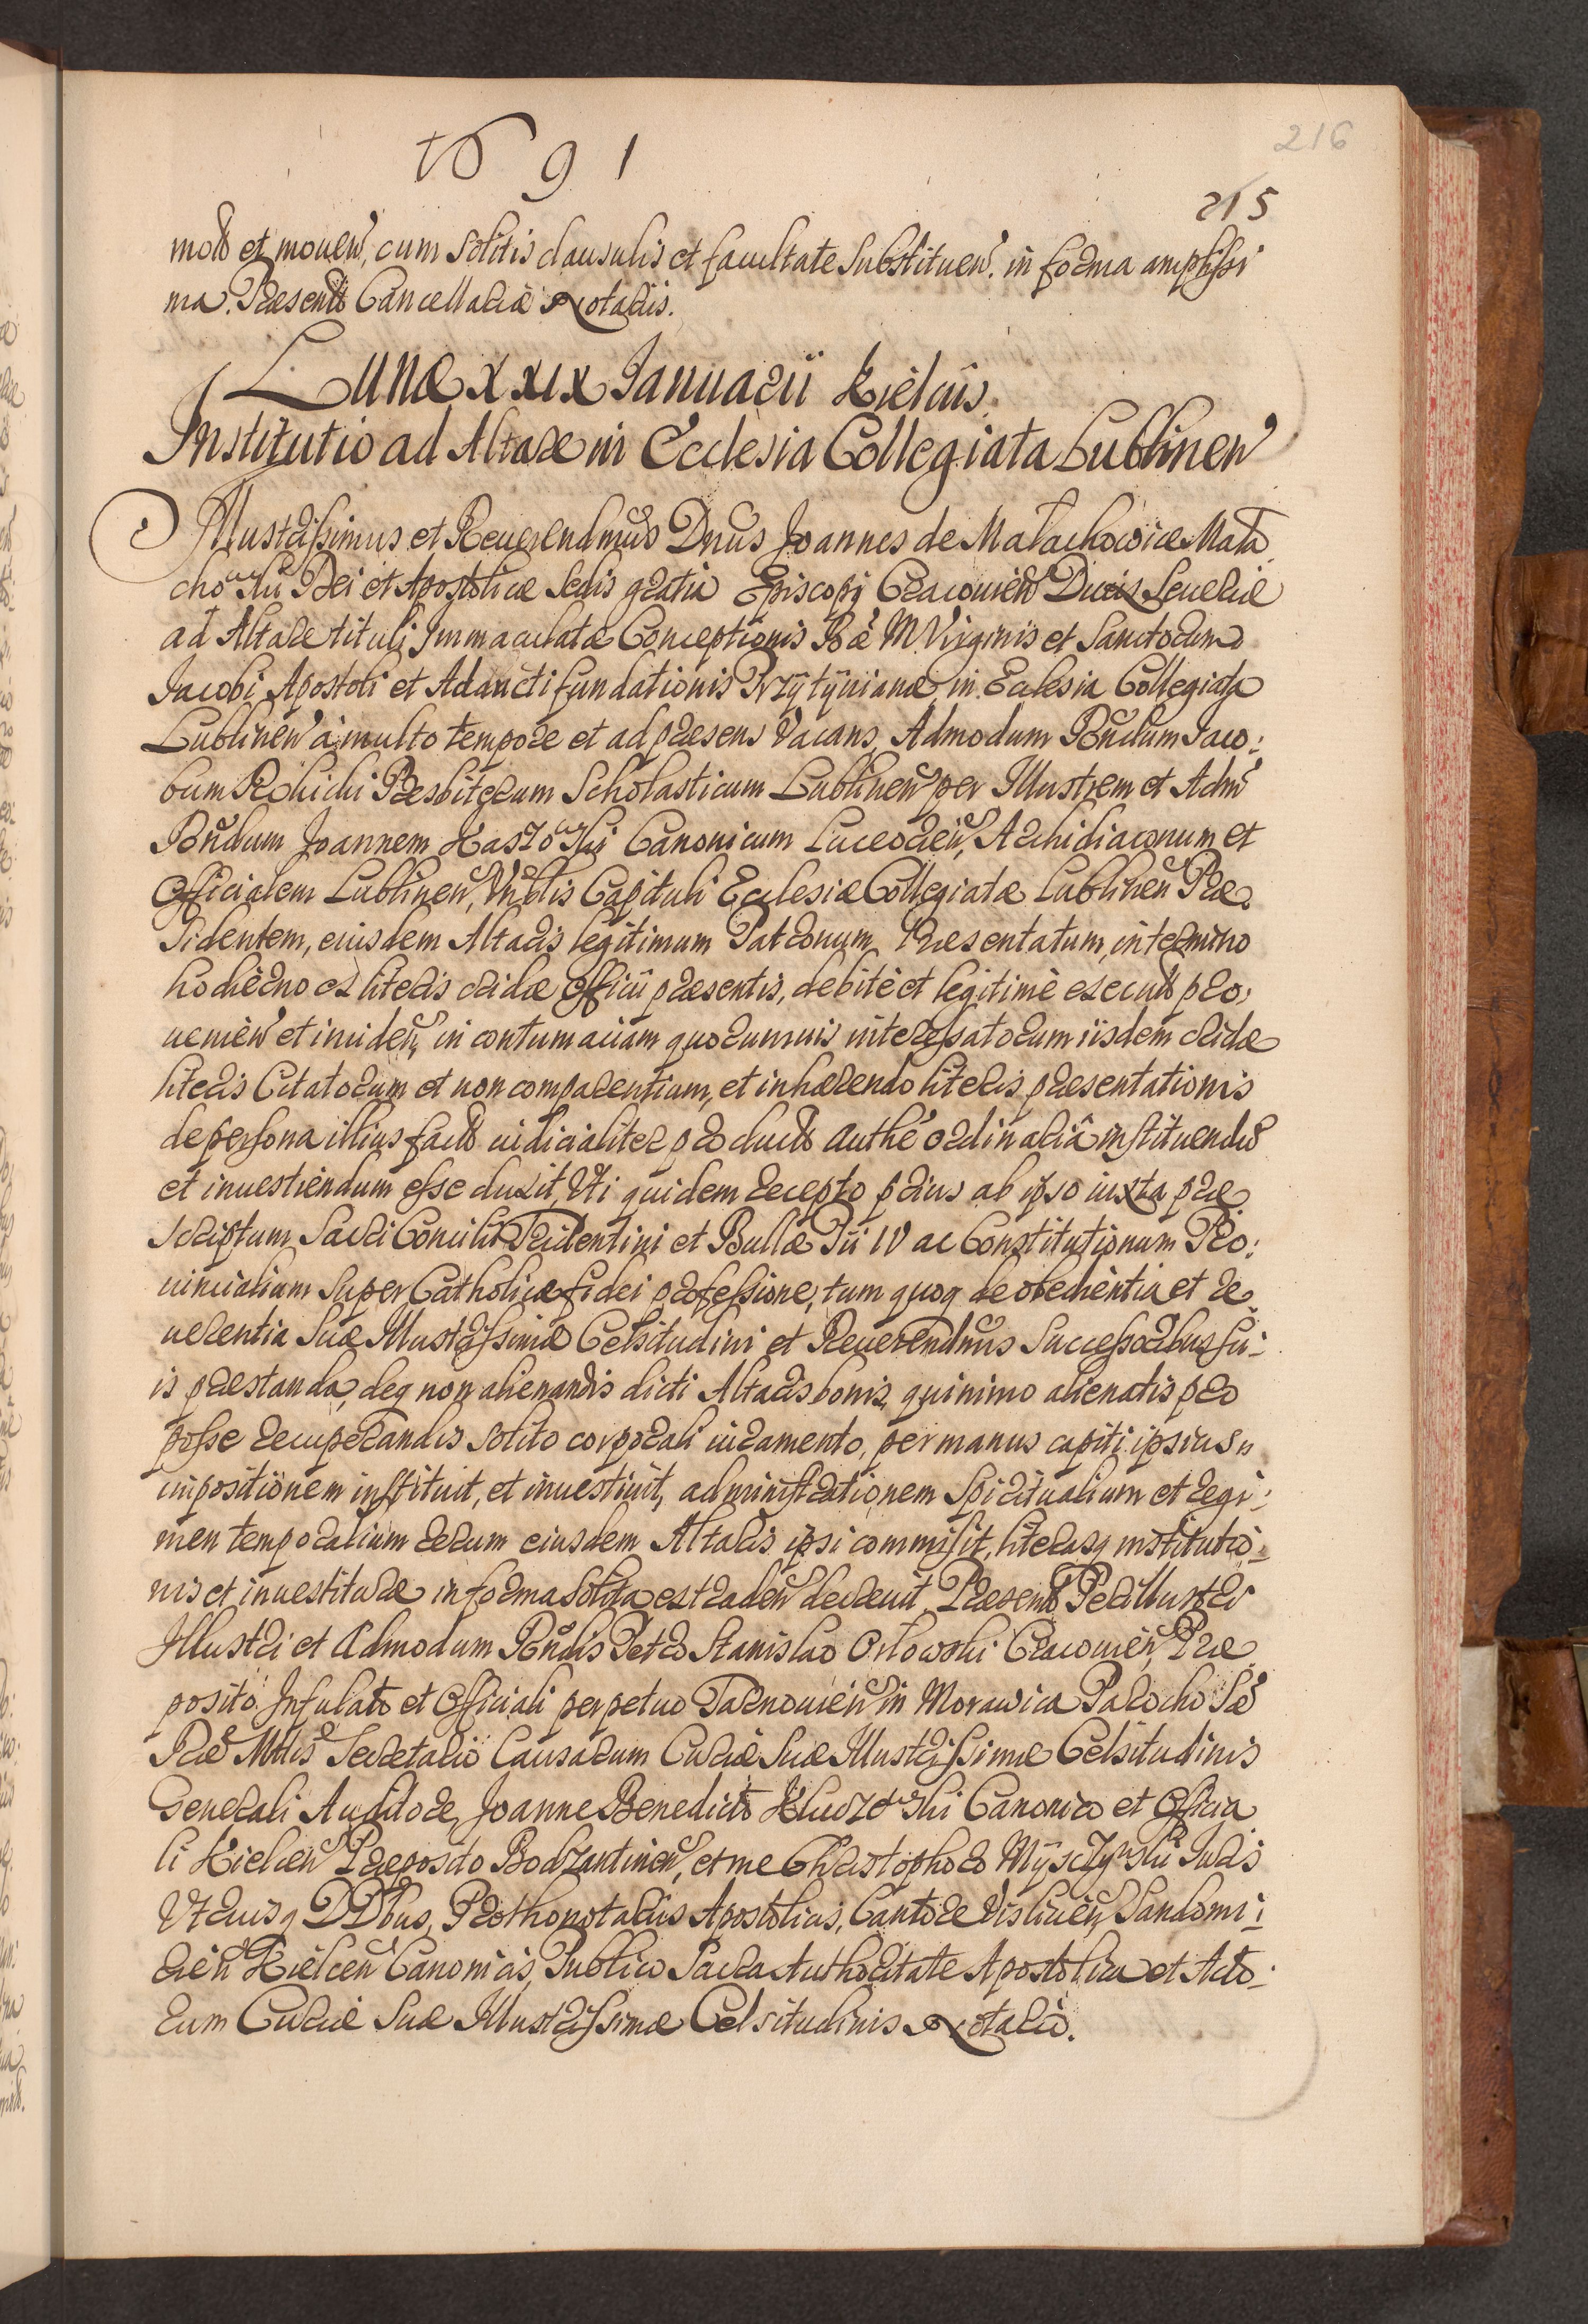 1691
216
215
mot et mouen, cum solitis clausulis et facultate substituen. in forma amplissi
ma. Praesent Cancellariae Notariis.
Lunae XXIX Januarii Kielciis.
Institutio ad Altare in Ecclesia Collegiata Lublinen
Illustrissimus et Reuerendmus Dnus Joannes de Małachowice Mała
chowski Dei et Apostolicae Sedis gratia Episcopus Cracouien Dux Seueriae
ad Altare tituli Immaculatae Conceptionis Bae M. Virginis et Sanctorum
Jacobi Apostoli et Adaucti fundationis Przytyniana in Ecclesia Collegiata
Lublinen à multo tempore et ad praesens vacans, Admodum Rndum Jaco:
bum Presbiterum Scholasticum Lublinen per Illustrem et Adm
Rndum Joannem Canonicum Luceorien, Archidiaconum et
Officialem Lublinen, Vnblis Capituli Ecclesiae Collegiatae Lublinen Prae
sidentem, eiusdem Altaris legitimum Patronum Praesentatum, in termino
hodierno ex literis cridae Officii praesentis, debitè et legitimè execut pro:
uenien et inciden, in contumaciam quorumuis interessatorum iisdem cridae
literis Citatorum et non comparentium, et inhaerendo literis praesentationis
de persona illius fact iudicialiter product authe ordinariâ instituendum
et inuestiendum esse duxit, Vti quidem recepto prius ab ipso iuxta prae
scriptum Sacri Concilii Tridentini et Bullae Pii IV ac Constitutionum Pro:
uincialium super Catholicae fidei professione, tum quoq de obedientia et re
uerentia Suae Illustrissimae Celsitudini et Reuerendmis Successoribus su:
is praestanda, deq non alienandis dicti Altaris bonis, quinimo alienatis pro
posse recuperandis solito corporali iuramento, per manus capiti ipsius
impositionem instituit, et inuestiuit, administrationem Spiritualium et regi:
men temporalium rerum eiusdem Altaris ipsi commisit, literasq institutio:
nis et inuestiturae in forma solita extraden decreuit. Praesent Perillustri
Illustri et Admodum Rndis Petro Stanislao Orłowski Cracouien, Prae
posito Infulato et Officiali perpetuo Tarnouien in Morawica Parocho Sae
Rae Mttis Secretario Causarum Curiae Suae Illustrissimae Celsitudinis
Generali Auditore, Joanne Benedicto Canonico et Officia
li Kielcen Praeposito Bodzantinen, et me Christophoro Juris
Vtriusq DDribus, Prothonotariis Apostolicis, Cantore Vislicien, Sandomi:
rien Kielcen Canonicis, Publico Sacra Authoritate Apostolica et Acto:
rum Curiae Suae Illustrissimae Celsitudinis Notario.